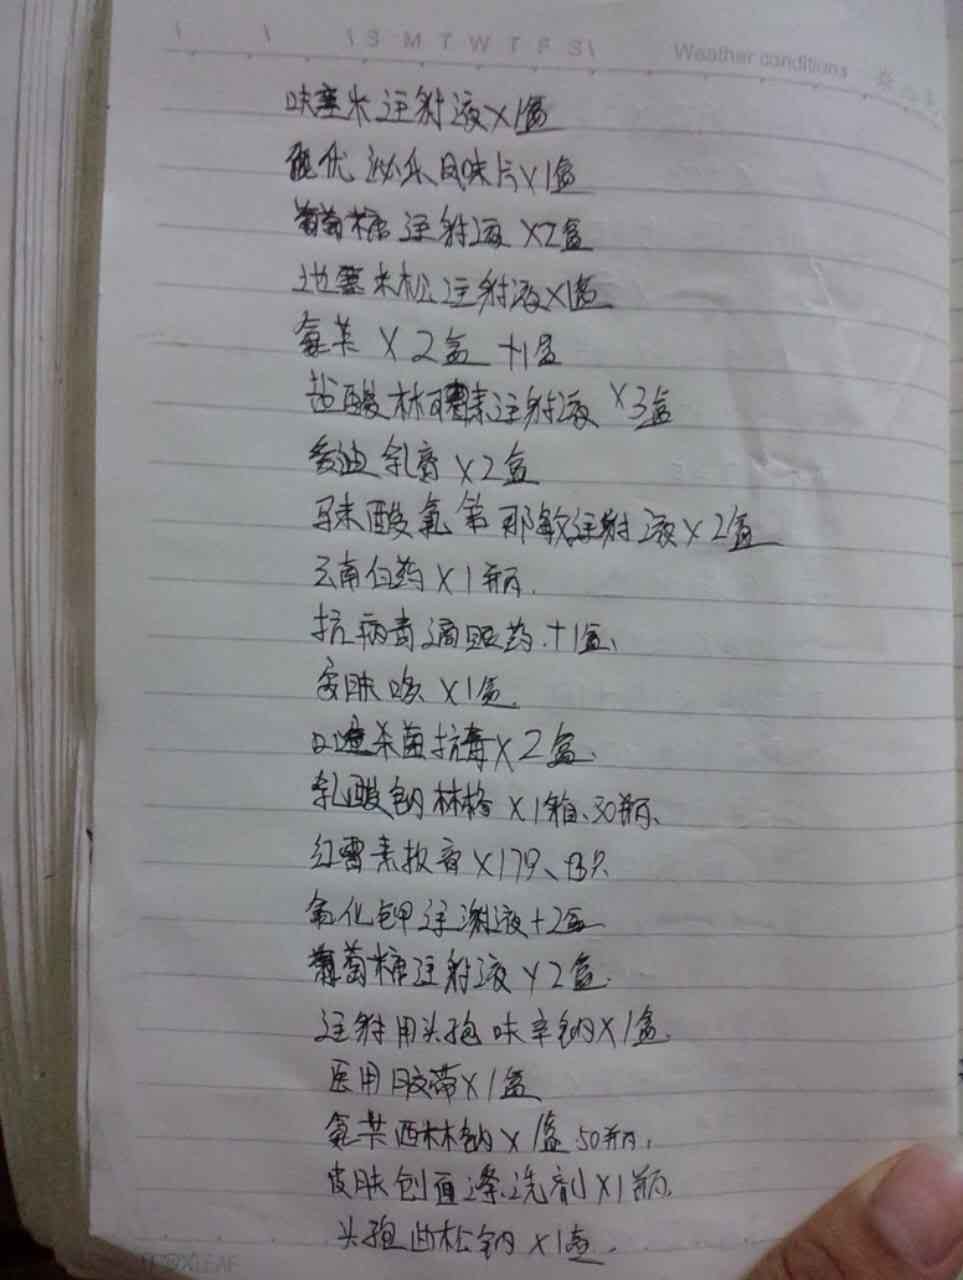 S M T W T F S Weather conditions
呋塞米注射液×1盒
能优 泌乐风味片×1盒
葡萄糖注射液×2盒
地塞米松注射液×1盒
氨苄×2盒+1盒
盐酸林可霉素注射液×3盒
乳膏×2盒
马来酸氯苯那敏注射液×2盒
云南白药×1瓶.
抗病毒滴眼药.+1盒、
×1盒.
口喷杀菌抗毒×2盒.
乳酸钠林格×1箱、30瓶、
红霉素软膏×17只、13只
氯化钾注射液+2盒
葡萄糖注射液×2盒.
注射用头孢呋辛钠×1盒.
医用胶带×1盒
氨苄西林钠×1盒.50瓶.
皮肤创面涤洗剂×1瓶.
头孢曲松钠×1盒.